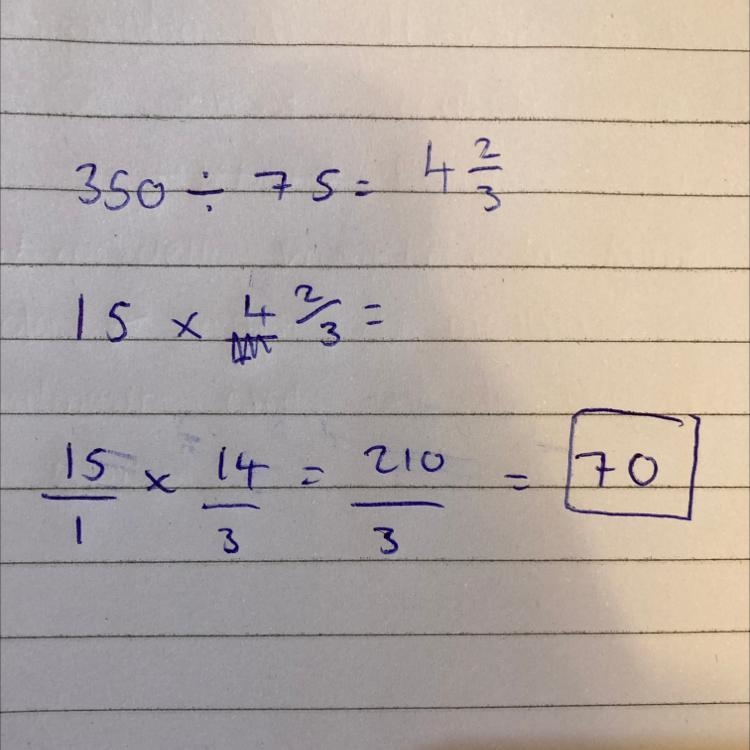 350 ÷ 75 = 4 2/3
15 × 4 2/3 =
15/1 × 14/3 = 210/3 = 70